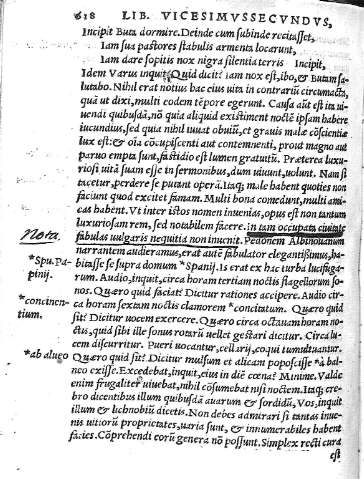 618 LIB. VICESIMVSSECVNDVS,
Incipit Buta dormire. Deinde cum subinde recitasset,
Iam sua pastores stabulis armenta locarunt,
Iam dare sopitis nox nigra silentia terris Incipit,
Idem Varus inquit, Quid dicit? iam nox est, ibo, & Butam sa-
lutabo. Nihil erat notius hac eius uita in contrariũ circumacta,
quã ut dixi, multi eodem tẽpore egerunt. Causa aũt est ita ui-
uendi quibusdã, nõ quia aliquid existiment noctẽ ipsam habere
iucundius, sed quia nihil iuuat obuiũ, et grauis malæ cõscientiæ
lux est: & oĩa cõcupiscenti aut contemnenti, prout magno aut
paruo empta sunt, fastidio est lumen gratuitũ. Præterea luxu-
riosi uitã suam esse in sermonibus, dum uiuunt, uolunt. Nam si
tacetur, perdere se putant operã. Itaq; male habent quoties non
faciunt quod excitet famam. Multi bona comedunt, multi ami-
cas habent. Vt inter istos nomen inuenias, opus est non tantum
luxuriosam rem, sed notabilem facere. In tam occupata ciuitate
Nota. fabulas uulgaris nequitia non inuenit. Pedonem Albinouanum
narrantem audieramus, erat autẽ fabulator elegantissimus, ha-
*Spu.Pa- bitasse se supra domum *Spanij. is erat ex hac turba lucifuga-
pinij. rum. Audio, inquit, circa horam tertiam noctis flagellorum so-
nos. Quæro quid faciat? Dicitur rationes accipere. Audio cir-
*concinen- ca horam sextam noctis clamorem *concitatum. Quæro quid
tium. sit? Dicitur uocem exercere. Quæro circa octauam horam no-
ctis, quid sibi ille sonus rotarũ uellet? gestari dicitur. Circa lu-
cem discurritur. Pueri uocantur, cellarij, coqui tumultuantur.
*ab alugo Quæro quid sit? Dicitur mulsum et alicam poposcisse *à bal-
neo exisse. Excedebat, inquit, eius in diẽ cœna? Minime. Valde
enim frugaliter uiuebat, nihil cõsumebat nisi noctem. Itaq; cre-
bro dicentibus illum quibusdã auarum & sordidũ, Vos, inquit
illum & lychnobiũ dicetis. Non debes admirari si tantas inue-
nis uitiorũ proprietates, uaria sunt, & innumerabiles habent
facies. Cõprehendi eorũ genera nõ possunt. Simplex recti cura
est